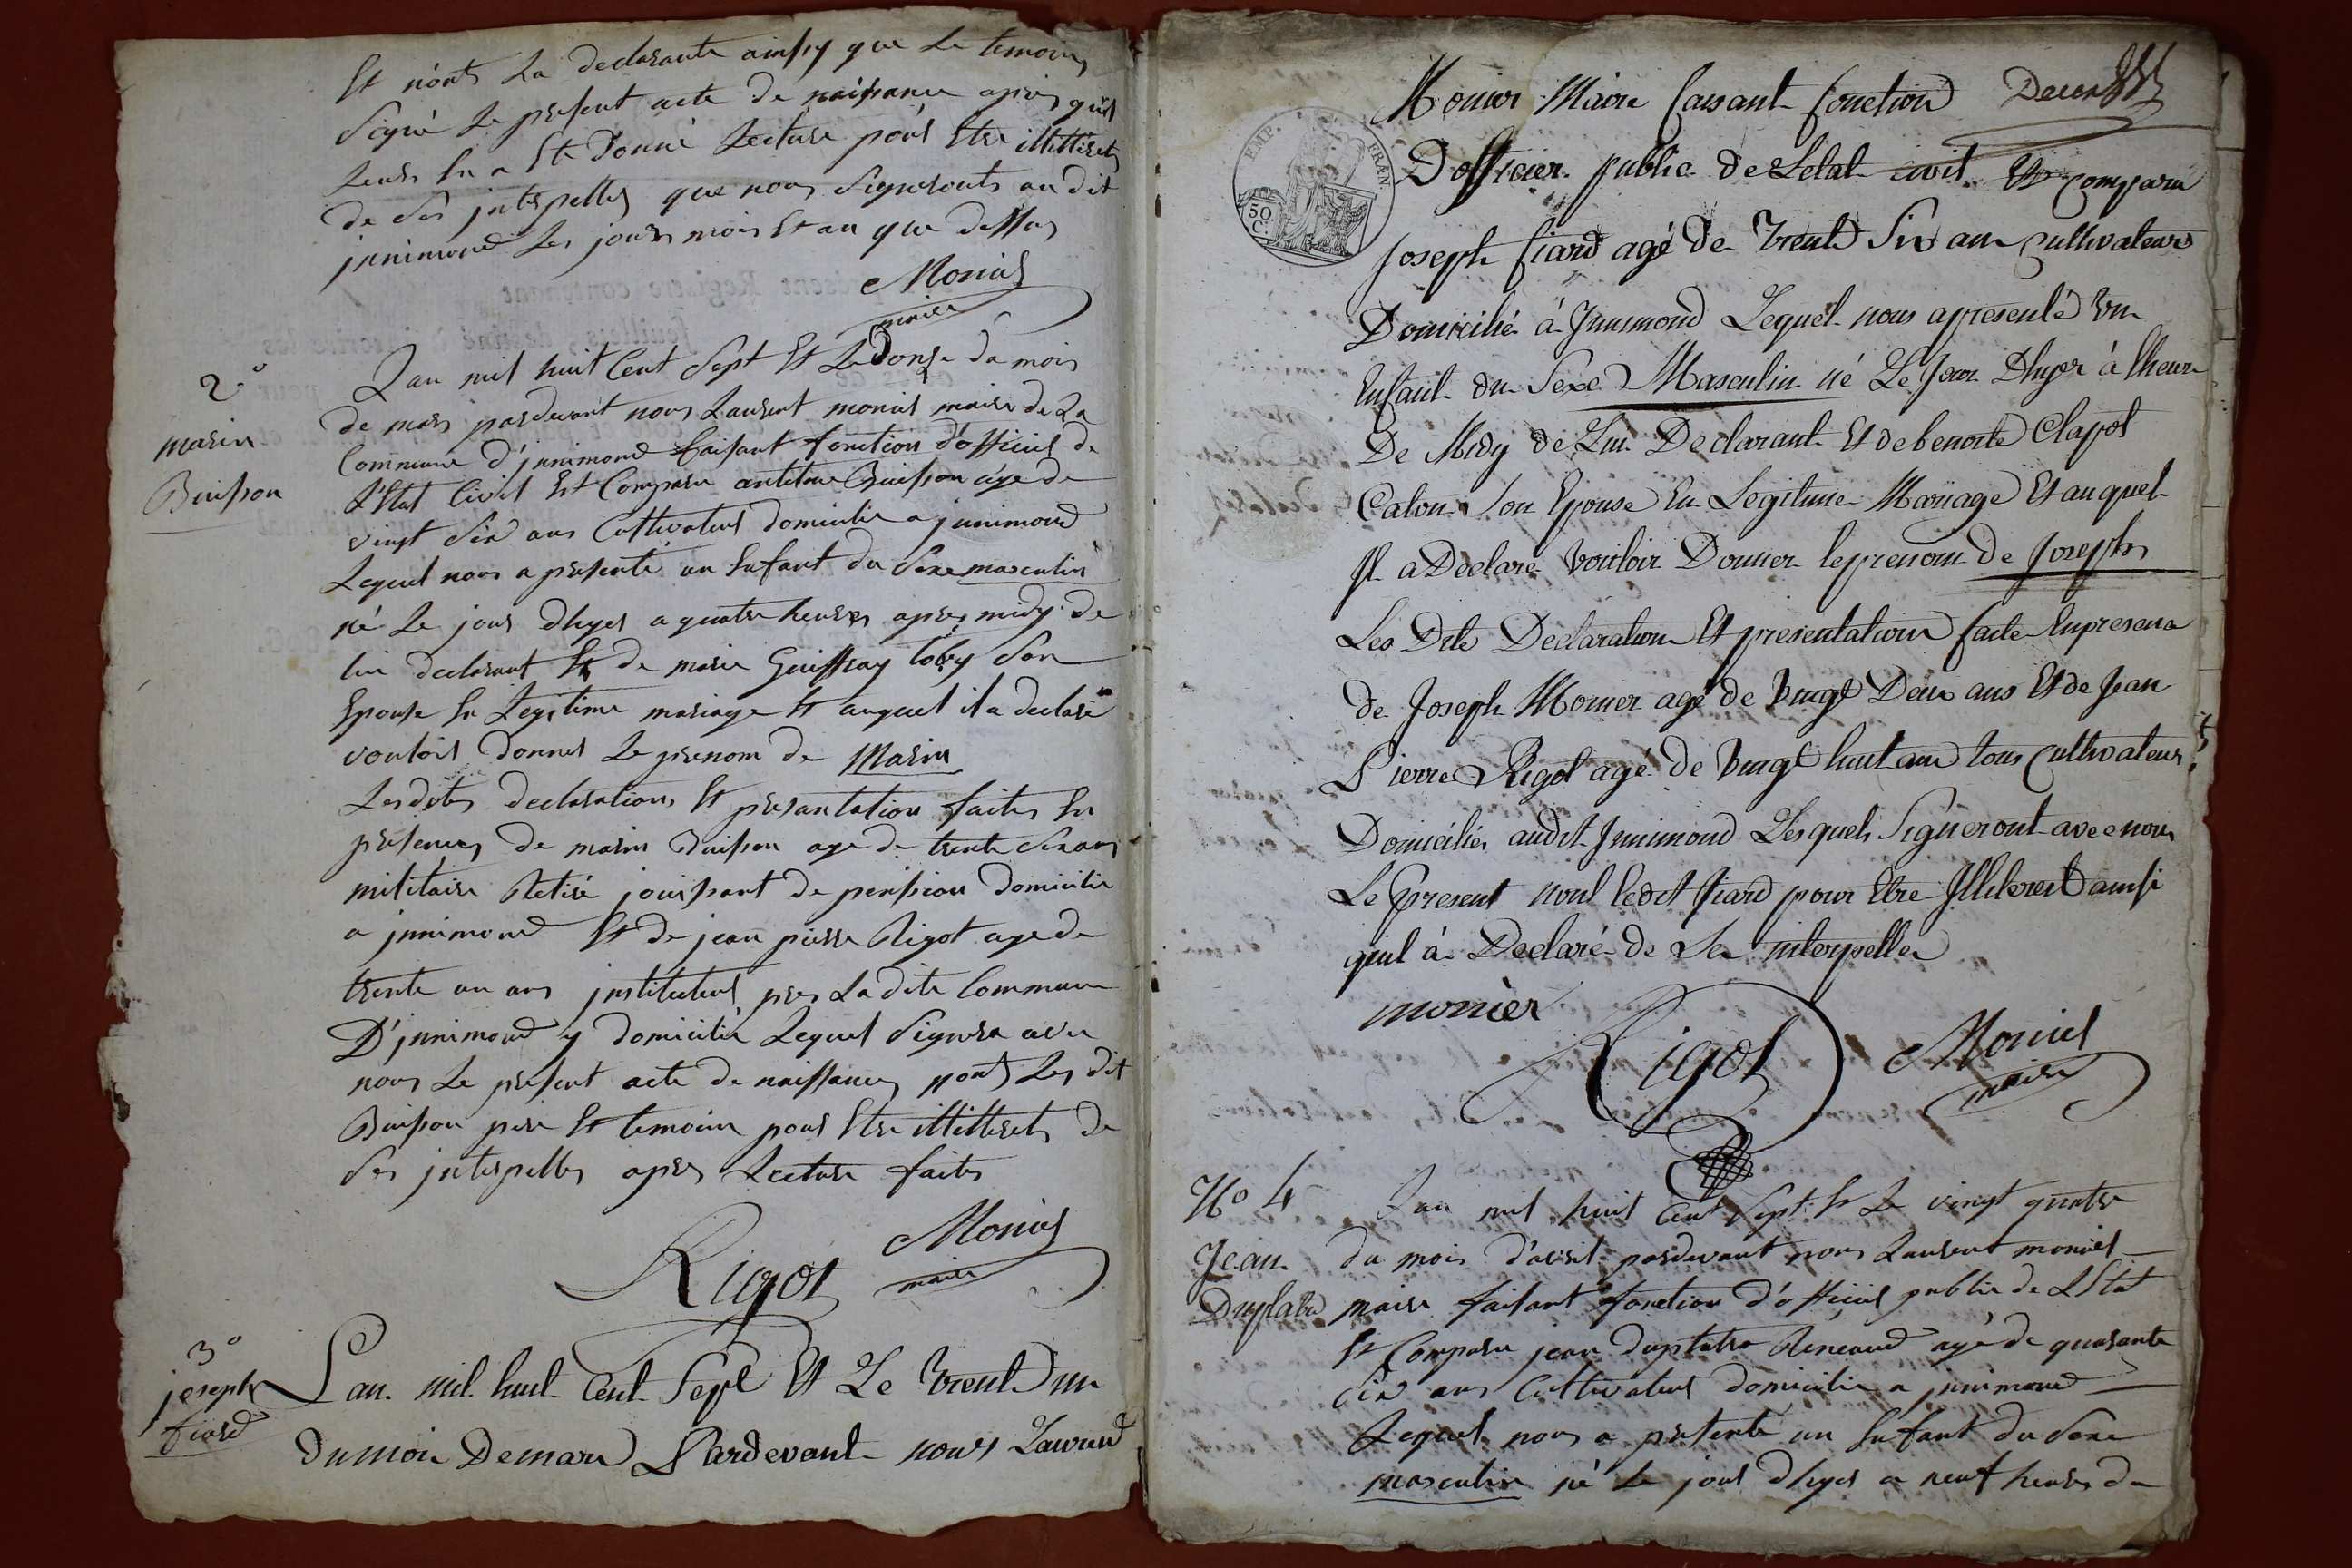 Et n'ont La declarante ainssy que Le temoin
Signé Le present acte de naissance apres quil
Leurs En a Ete Donné Lecture pour Etre illitterets
de Ses interpelles que nous Signeronts au dit
junimond Les jours mois Et an que dessus
Monier
maire
2.°
marin
Buisson
L'an mil huit Cent Sept Et Le Donze du mois
de mars pardevant nous Laurent monier maire de La
Commune d'junimond faisant fonction d'officier de
L'Etat Civil Est Comparu antelme Buisson age de
vingt Six ans Cultivateur domicilie a junimond
Lequel nous a presenté un Enfant du Sexe masculin
né Le jour d'hyer a quatre heures apres midy de
lui declarant Et de marie Guiffray toby Son
Epouse En Legitime mariage Et auquel il a declaré
vouloir donner Le prenom de Marin
Les dites declarations Et presantation faites En
presences de marin Buisson age de trente Six ans
militaire Retiré jouissant de penssion domicilie
a junimond Et de jean pierre Rigot age de
trente un ans jnstituteur pres La dite Commune
D'junimond y domicilié Lequel Signera avec
nous Le present acte de naissances nont Les dit
Buisson pere Et temoin pour Etre illitterets de
Ses jnterpelles apres Lecture faites
Rigot Monier
maire
3°
joseph
fiard
L'an mil huit Cent Sept Et Le trente un
Du mois De mars Pardevant nous Laurend
EMP. FRAN.
50
C.
Monier Maire faisant fonction
D'officier public de Letat civil Est comparu
Joseph fiard agé de trente Six ans Cultivateurs
Domicilié à Junimond Lequel nous a presenté un
Enfant du Sexe Masculin né Le Jour D'hyer à lheure
De Midy de Lui Declarant Et de benoite Clapot
Caton Son Epouse En Legitime Mariage Et auquel
Il a Declaré Vouloir Donner le prenom de Joseph
Les Dite Declaration Et presentation faite En presence
de Joseph Monier agé de Vingt Deux ans Et de Jean
Pierre Rigot agé de Vingt huit ans tous Cultivateurs
Domiciliés audit Junimond Lesquels Signeront avec nous
Le present nont ledit fiard pour Etre Illiterest ainsi
quil à Declaré de Se interpelle
monier
Rigot
Monier
maire
N° 4
Jean
Duplatre
L'an mil huit Cent Sept Et Le vingt quatre
du mois d'avril pardevant nous Laurent monier
maire faisant fonction d'officier public de LEtat
Est Comparu jean duplatre Reneaud agé de quarante
Six ans Cultivateur domicilie a junimond
Lequel nous a presente un Enfant du Sexe
masculin né Le jour d'hyer a neuf heures du